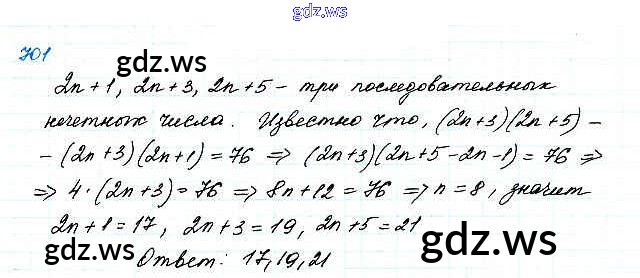 gdz.ws
701
gdz.ws
2n+1, 2n+3, 2n+5 – три последовательных
нечетных числа. Известно что, (2n+3)(2n+5) –
– (2n+3)(2n+1) = 76 ⇒ (2n+3)(2n+5-2n-1) = 76 ⇒
⇒ 4·(2n+3) = 76 ⇒ 8n+12 = 76 ⇒ n = 8, значит
2n+1 = 17, 2n+3 = 19, 2n+5 = 21
gdz.ws gdz.ws
Ответ: 17, 19, 21